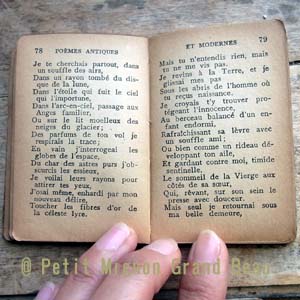 78 POÈMES ANTIQUES
Je te cherchais partout, dans
un souffle des airs,
Dans un rayon tombé du dis-
que de la lune,
Dans l'étoile qui fuit le ciel
qui l'importune,
Dans l'arc-en-ciel, passage aux
Anges familier,
Ou sur le lit moelleux des
neiges du glacier ;
Des parfums de ton vol je
respirais la trace ;
En vain j'interrogeai les
globes de l'espace,
Du char des astres purs j'obs-
curcis les essieux,
Je voilai leurs rayons pour
attirer tes yeux,
J'osai même, enhardi par mon
nouveau délire,
Toucher les fibres d'or de
la céleste lyre.
ET MODERNES 79
Mais tu n'entendis rien, mais
tu ne me vis pas.
Je revins à la Terre, et je
glissai mes pas
Sous les abris de l'homme où
tu reçus naissance.
Je croyais t'y trouver pro-
tégeant l'innocence,
Au berceau balancé d'un en-
fant endormi,
Rafraîchissant sa lèvre avec
un souffle ami ;
Ou bien comme un rideau dé-
veloppant ton aile,
Et gardant contre moi, timide
sentinelle,
Le sommeil de la Vierge aux
côtés de sa sœur,
Qui, rêvant, sur son sein le
presse avec douceur.
Mais seul je retournai sous
ma belle demeure,
@ Petit Mignon Grand Beau